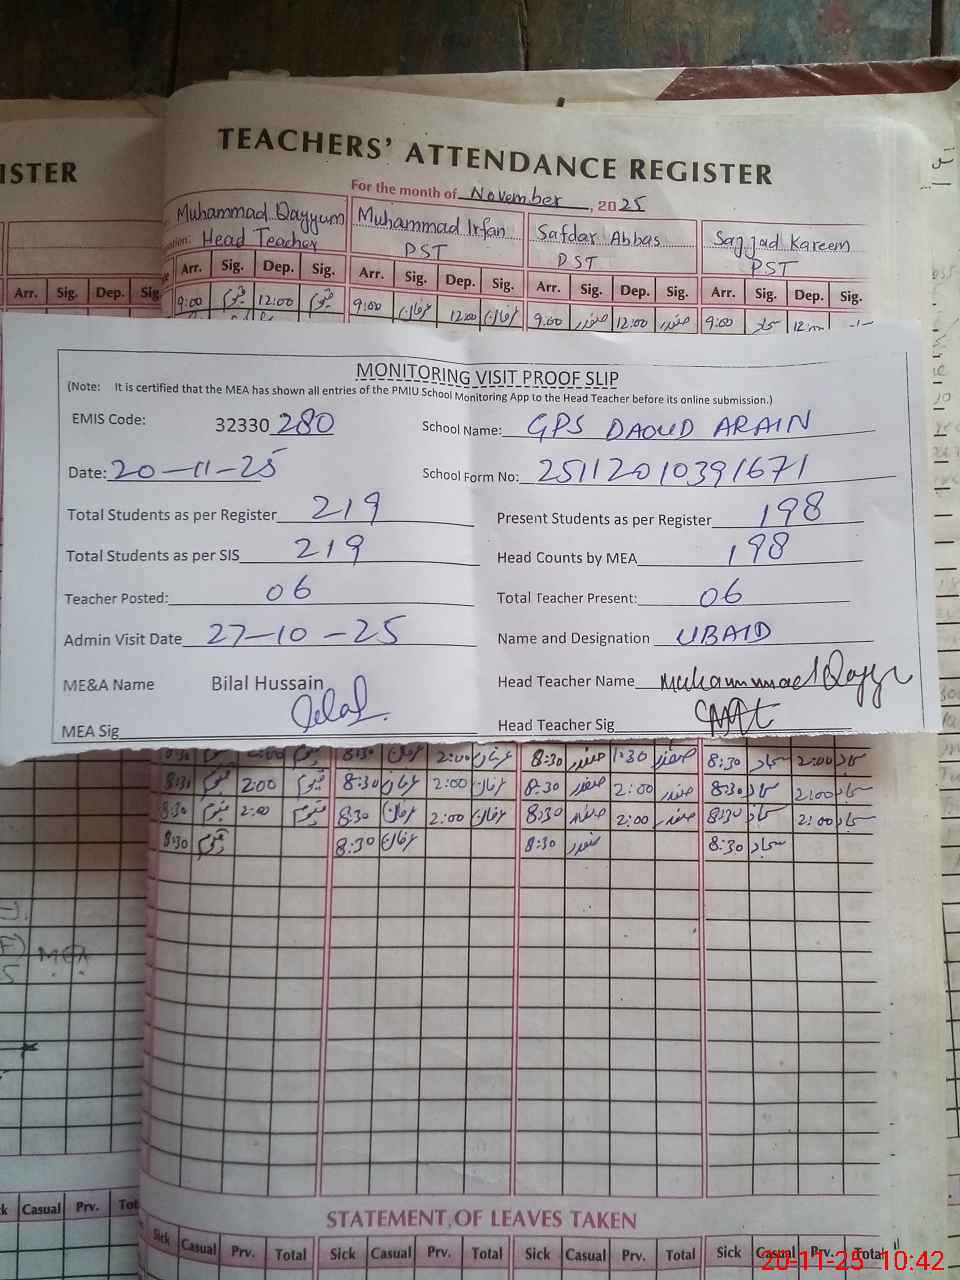 ISTER
TEACHERS' ATTENDANCE REGISTER
For the month of November, 2025
Muhammad Qayyum Muhammad Irfan Safdar Abbas Sajjad Kareem
Head Teacher PST PST PST
Arr. Sig. Dep. Sig. Arr. Sig. Dep. Sig. Arr. Sig. Dep. Sig. Arr. Sig. Dep. Sig.
9:00 قیوم 12:00 قیوم 9:00 عرفان 12:00 عرفان 9:00 صفدر 12:00 صفدر 9:00 سجاد
MONITORING VISIT PROOF SLIP
(Note: It is certified that the MEA has shown all entries of the PMIU School Monitoring App to the Head Teacher before its online submission.)
EMIS Code: 32330 280 School Name: GPS DAOUD ARAIN
Date: 20-11-25 School Form No: 25112010391671
Total Students as per Register 219 Present Students as per Register 198
Total Students as per SIS 219 Head Counts by MEA 198
Teacher Posted: 06 Total Teacher Present: 06
Admin Visit Date 27-10-25 Name and Designation UBAID
ME&A Name Bilal Hussain Head Teacher Name Muhammad Qayyum
MEA Sig Bilal Head Teacher Sig
8:30 قیوم 2:00 قیوم 8:30 عرفان 2:00 عرفان 8:30 صفدر 1:30 صفدر 8:30 سجاد 2:00 سجاد
8:30 قیوم 2:00 قیوم 8:30 عرفان 2:00 عرفان 8:30 صفدر 2:00 صفدر 8:30 سجاد 2:00 سجاد
8:30 قیوم 2:00 قیوم 8:30 عرفان 2:00 عرفان 8:30 صفدر 2:00 صفدر 8:30 سجاد 2:00 سجاد
8:30 قیوم 8:30 عرفان 8:30 صفدر 8:30 سجاد
MEA
STATEMENT OF LEAVES TAKEN
Casual Prv. Sick Casual Prv. Total Sick Casual Prv. Total Sick Casual Prv. Total Sick Casual Prv. Total
20-11-25 10:42